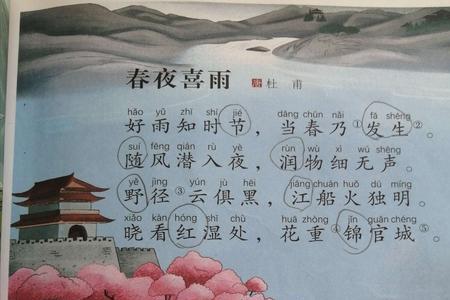 春夜喜雨
唐 杜 甫
hǎo yǔ zhī shí jié dāng chūn nǎi fā shēng
好雨知时节，当春乃①发生②。
suí fēng qián rù yè rùn wù xì wú shēng
随风潜入夜，润物细无声。
yě jìng yún jù hēi jiāng chuán huǒ dú míng
野径③云俱黑，江船火独明。
xiǎo kàn hóng shī chù huā zhòng jǐn guān chéng
晓看红湿处，花重④锦官城⑤。